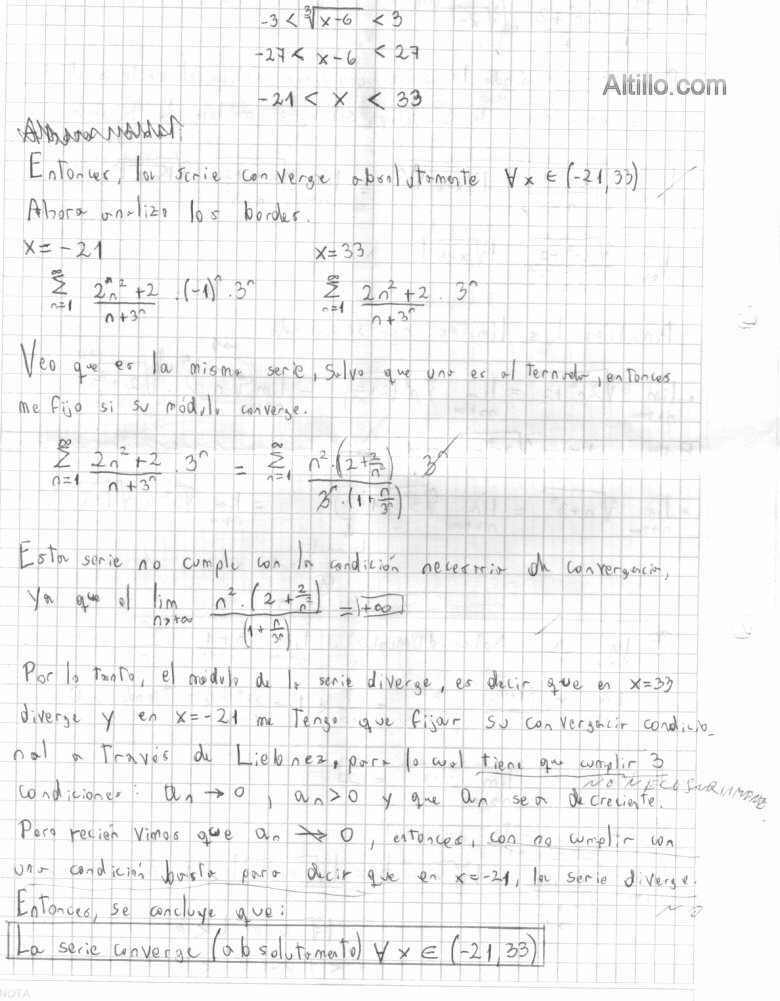 -3 < ∛(x-6) < 3
-27 < x-6 < 27
Altillo.com
-21 < x < 33
Entonces, la serie converge absolutamente ∀ x ∈ (-21, 33)
Ahora analizo los bordes.
x = -21 x = 33
∞ Σ n=1 (2n²+2)/(n+3ⁿ) · (-1)ⁿ · 3ⁿ ∞ Σ n=1 (2n²+2)/(n+3ⁿ) · 3ⁿ
Veo que es la misma serie, salvo que una es alternada, entonces
me fijo si su módulo converge.
∞ Σ n=1 (2n²+2)/(n+3ⁿ) · 3ⁿ = ∞ Σ n=1 (n²·(2+2/n²))/(3ⁿ·(1+n/3ⁿ)) · 3ⁿ
Esta serie no cumple con la condición necesaria de convergencia,
ya que el lim n→+∞ (n²·(2+2/n²))/(1+n/3ⁿ) = +∞
Por lo tanto, el módulo de la serie diverge, es decir que en x=33
diverge y en x=-21 me tengo que fijar su convergencia condicio-
nal a través de Liebnez, para lo cual tiene que cumplir 3
NO NECESARIAMENTE
condiciones: aₙ → 0, aₙ > 0 y que aₙ sea decreciente.
Pero recién vimos que aₙ ↛ 0, entonces, con no cumplir con
una condición basta para decir que en x=-21, la serie diverge.
NO
Entonces, se concluye que:
La serie converge (absolutamente) ∀ x ∈ (-21, 33)